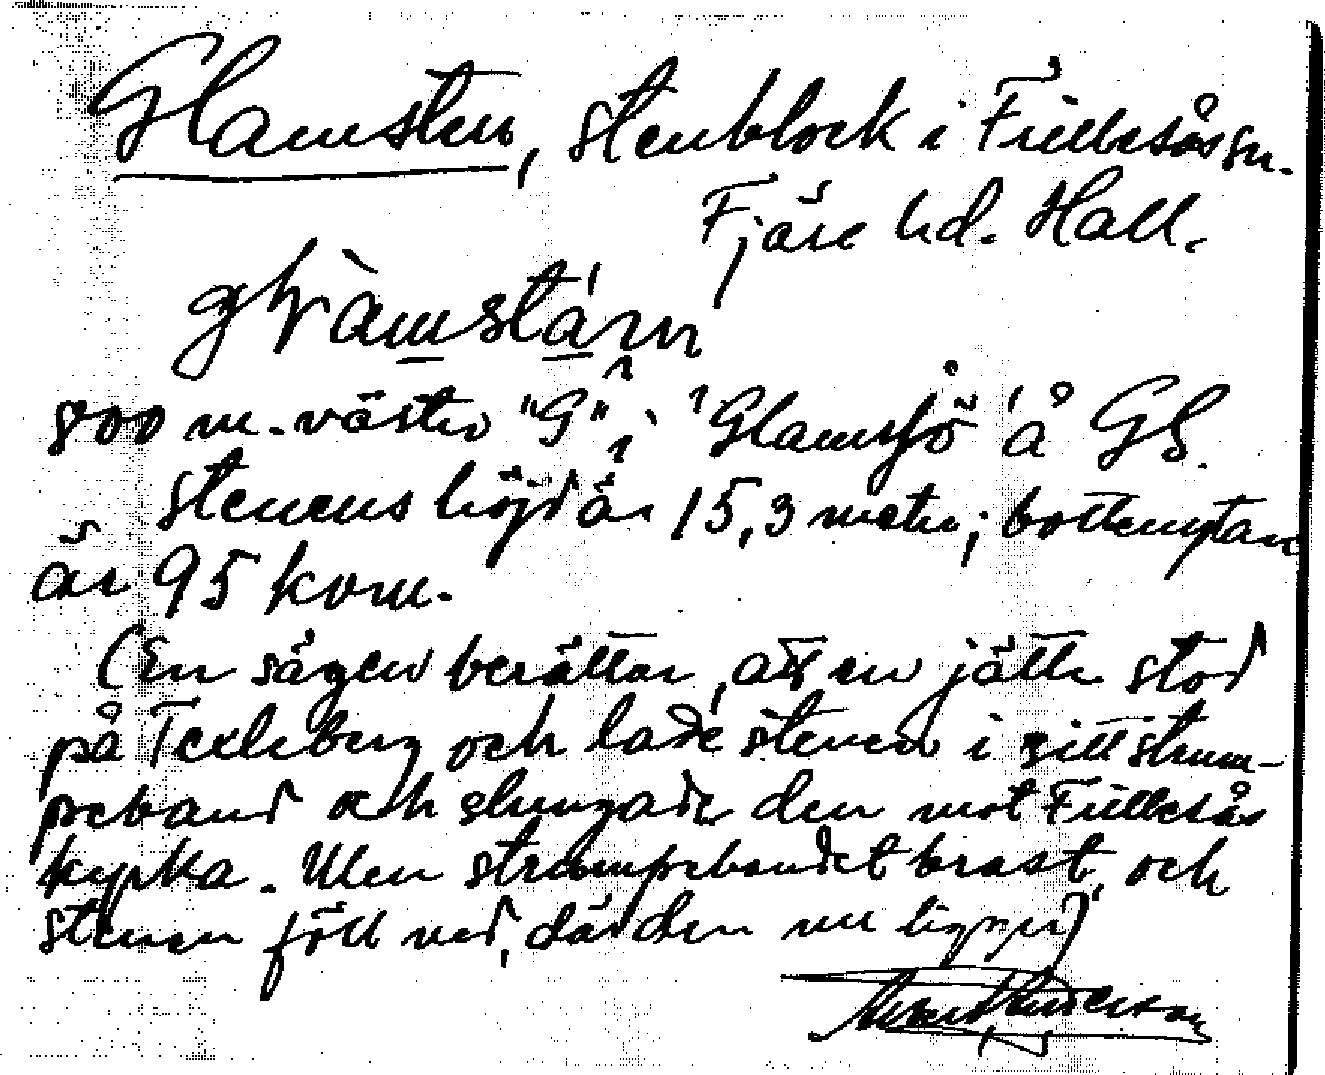 Glamsten, stenblock i Fjällesås sn.
Fjäre hd. Hall.
800 m. väster "G" i "Glamsjö" å GS.
Stenens höjd är 15,3 meter; bottenytan
är 95 kvm.
(En sägen berättar, att en jätte stod
på Texleberg och lade stenen i sitt strum-
peband och slungade den mot Fjällesås
kyrka. Men strumpebandet brast, och
stenen föll ned, där den nu ligger)